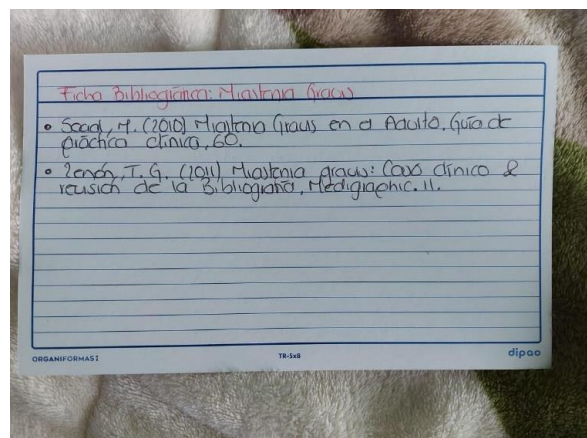 Ficha Bibliográfica: Miastenia Gravis
• Saad, M. (2010) Miastenia Gravis en el Adulto. Guía de
práctica clínica, 60.
• Zenón, T. G. (2011) Miastenia gravis: Caso clínico &
revisión de la Bibliografía, Medigraphic. 11.
ORGANIFORMAS I TR-5x8 dipao